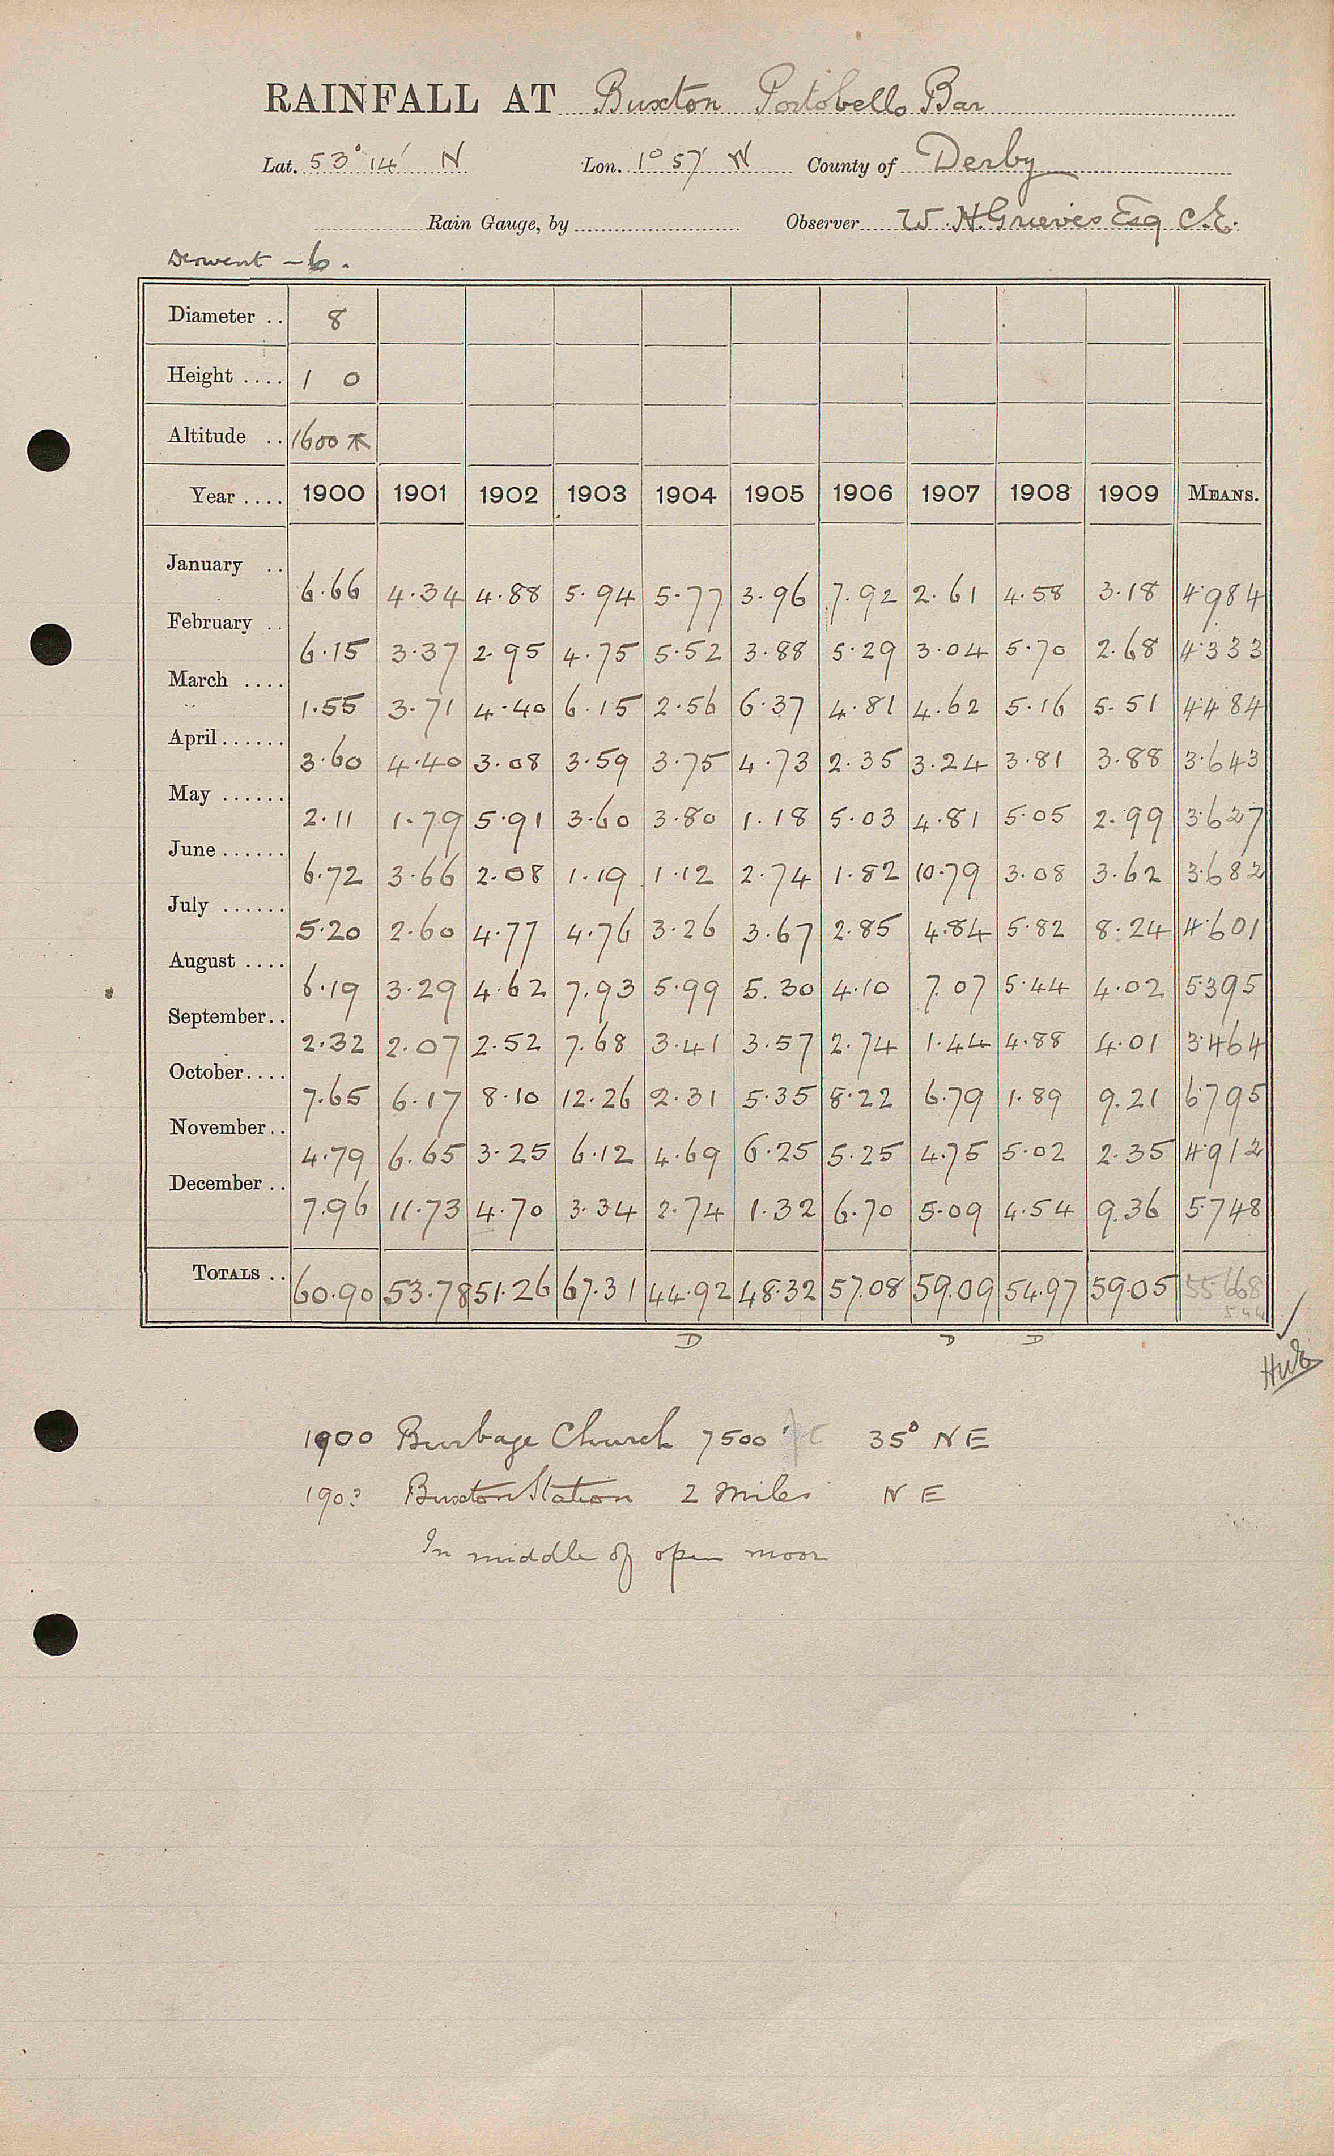 RAINFALL AT Buxton Portobello Bar
Lat. 53° 14' N Lon. 1° 57' W County of Derby
Rain Gauge, by Observer W. H. Grieves Esq C.E.
Derwent - 6.
Diameter .. 8
Height .... 1 0
Altitude .. 1600
Year .... 1900 1901 1902 1903 1904 1905 1906 1907 1908 1909 MEANS.
January .. 6.66 4.34 4.88 5.94 5.77 3.96 7.92 2.61 4.58 3.18 4.984
February .. 6.15 3.37 2.95 4.75 5.52 3.88 5.29 3.04 5.70 2.68 4.333
March .... 1.55 3.71 4.40 6.15 2.56 6.37 4.81 4.62 5.16 5.51 4.484
April ...... 3.60 4.40 3.08 3.59 3.75 4.73 2.35 3.24 3.81 3.88 3.643
May ...... 2.11 1.79 5.91 3.60 3.80 1.18 5.03 4.81 5.05 2.99 3.627
June ...... 6.72 3.66 2.08 1.19 1.12 2.74 1.82 10.79 3.08 3.62 3.682
July ...... 5.20 2.60 4.77 4.76 3.26 3.67 2.85 4.84 5.82 8.24 4.601
August .... 6.19 3.29 4.62 7.93 5.99 5.30 4.10 7.07 5.44 4.02 5.395
September.. 2.32 2.07 2.52 7.68 3.41 3.57 2.74 1.44 4.88 4.01 3.464
October.... 7.65 6.17 8.10 12.26 2.31 5.35 8.22 6.79 1.89 9.21 6.795
November.. 4.79 6.65 3.25 6.12 4.69 6.25 5.25 4.75 5.02 2.35 4.912
December .. 7.96 11.73 4.70 3.34 2.74 1.32 6.70 5.09 4.54 9.36 5.748
TOTALS .. 60.90 53.78 51.26 67.31 44.92 48.32 57.08 59.09 54.97 59.05 55.668
D D D
1900 Burbage Church 7500' 35° NE
1903 Buxton Station 2 miles NE
In middle of open moor